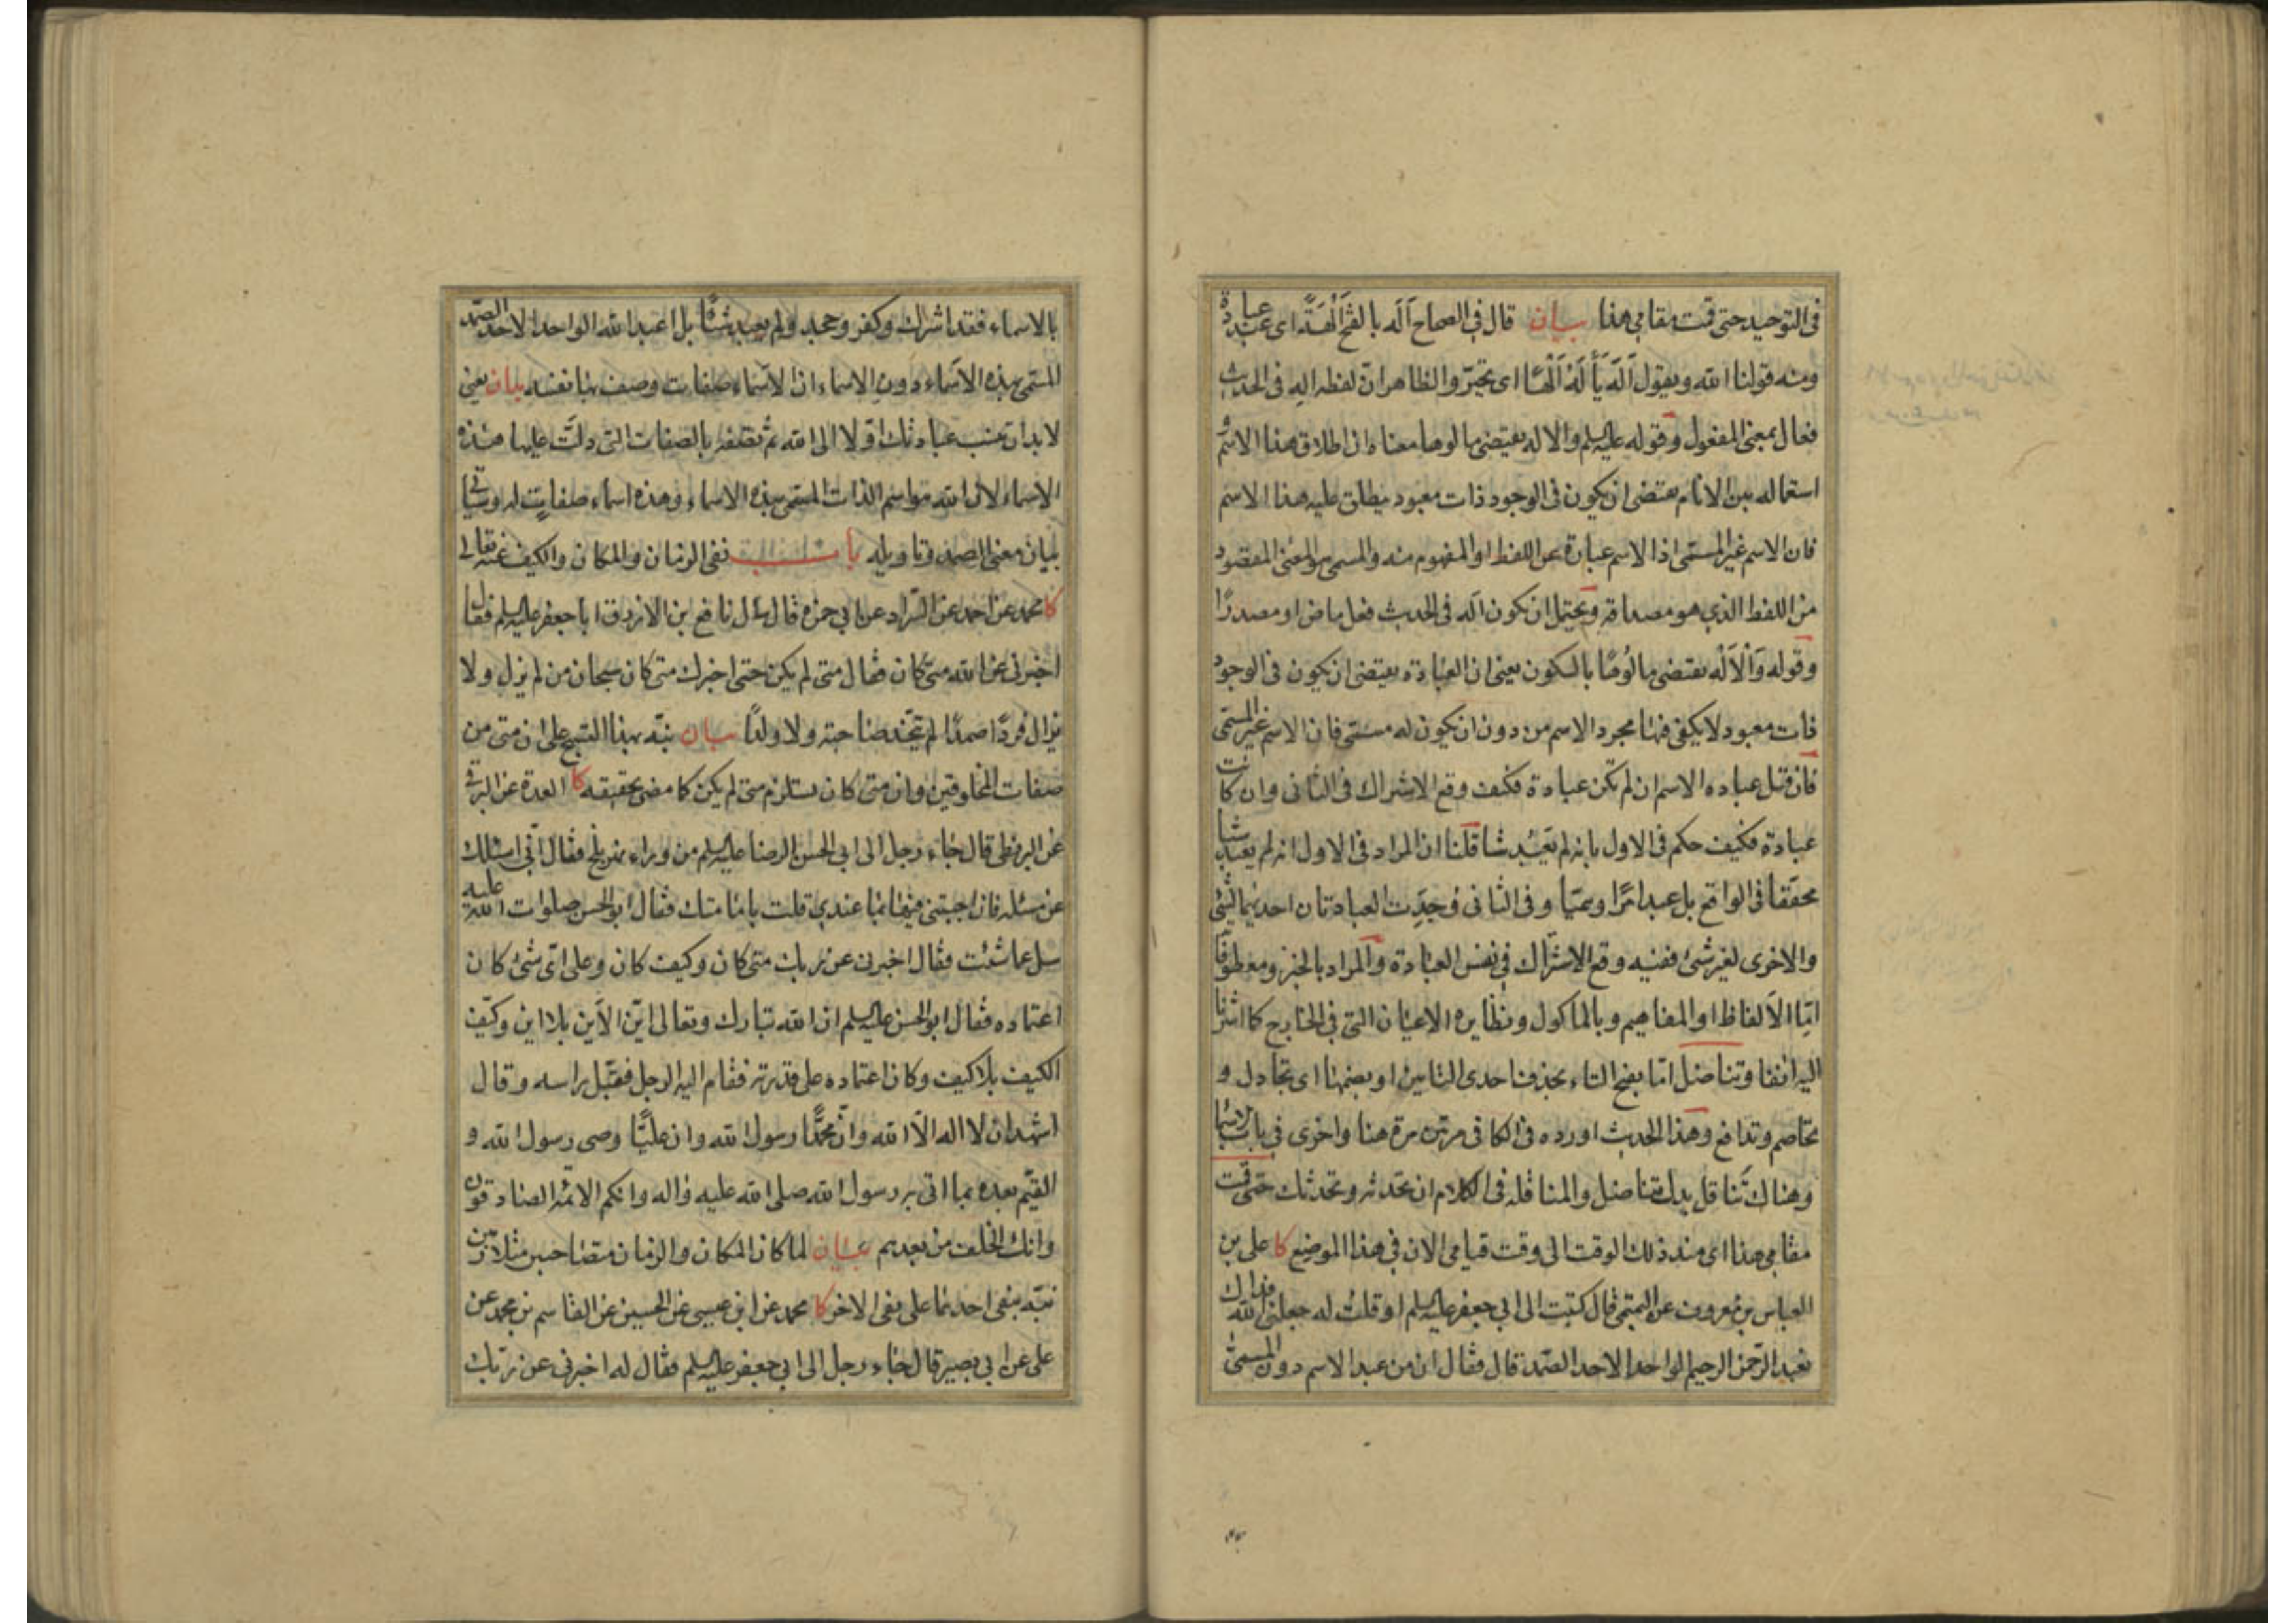 فى التوحيد حتى قمت مقامى هذا بيان قال فى الصحاح اَلَه بالفتح اَلْهَةً اى عبد عبادة
ومنه قولنا الله ويقول اَلَهَ يَأْلَهُ اَلَهًا اى تحيّر والظاهر انّ لفظه اله فى الحديث
فعال بمعنى المفعول وقوله عليه السلم والاله يقتضى مالوها معناه ان اطلاق هذا الاسم و
استعماله بين الانام يقتضى ان يكون فى الوجود ذات معبود يطلق عليه هذا الاسم
فان الاسم غير المسمّى اذا الاسم عبارة عن اللفظ او المفهوم منه والمسمى هو المعنى المقصود
من اللفظ الذى هو مصداقه ويحتمل ان يكون اله فى الحديث فعل ماض او مصدرًا
وقوله وَالْاَلْه يقتضى مالُوهًا بالسكون يعنى ان العبادة يقتضى ان يكون فى الوجود
ذات معبود لا يكفى فيها مجرد الاسم من دون ان يكون له مسمّى فان الاسم غير المسمّى
فان قيل عباده الاسم ان لم تكن عبادة فكيف وقع الاشراك فى الثانى وان كانت
عبادة فكيف حكم فى الاول بانه لم يَعْبُد شيا قلنا ان المراد فى الاول انه لم يعبد شيا
محققا فى الواقع بل عبد امرًا وهميّا وفى الثانى وُجِدَت العبادتان احديهما لشئ
والاخرى لغير شئ ففيه وقع الاشراك فى نفس العبادة والمراد بالخبز ومعطوفا
اتها الالفاظ او المفاهيم وبالماكول ونظايره الاعيان التى فى الخارج كما اشرنا
اليه انفا وتناضل امّا بفتح التاء بحذف احدى التايين او بضمها اى تجادل و
تخاصم وتدافع وهذا الحديث اورده فى الكافى مرتين مرة هنا واخرى فى باب الاسما
وهناك تناقل بدل تناضل والمناقله فى الكلام ان تحدثه وتحدثك حتى قمت
مقامى هذا اى منذ ذلك الوقت الى وقت قيامى الان فى هذا الموضع كا على بن
العباس بن معروف عن التميمى قال كتبت الى ابى جعفر عليه السلم او قلت له جعلنى الله فداك
نعبد الرّحمن الرحيم الواحد الاحد الصّمد قال فقال ان من عبد الاسم دون المسمى
بالاسماء فقد اشرك وكفر وجحد ولم يعبد شيئًا بل اعبد الله الواحد الاحد الصّمد
المسمّى بهذه الاسماء دون الاسماء ان الاسماء صفات وصف بها نفسه بيان يعنى
لابد ان تنسب عبادتك اوّلا الى الله ثم تصفه بالصفات التى دلّت عليها هذه
الاسماء لان الله هو اسم الذات المسمى بهذه الاسماء وهذه اسماء صفات له وسياتى
بيان معنى الصمد وتاويله باب نفى الزمان والمكان والكيف عنه تعالى
كا محمد عن احمد عن السّراد عن ابى حمزه قال سأل نافع بن الازرق ابا جعفر عليه السلم فقال
اخبرنى عن الله متى كان فقال متى لم يكن حتى اخبرك متى كان سبحان من لم يزل ولا
يزال فردًا صمدًا لم يتّخذ صاحبة ولا ولدًا بيان نبّه بهذا التسبيح على ان متى من
صفات المخلوقين وان متى كان يستلزم متى لم يكن كما مضى تحقيقه كا العدة عن البرقى
عن البزنطى قال جاء رجل الى ابى الحسن الرضا عليه السلم من وراء نهر بلخ فقال انّى اسئلك
عن مسئله فان اجبتنى فيها بما عندى قلت بامامتك فقال ابو الحسن صلوات الله عليه
سل عما شئت فقال اخبرنى عن ربك متى كان وكيف كان وعلى اىّ شئ كان
اعتماده فقال ابو الحسن عليه السلم ان الله تبارك وتعالى ايّن الاَين بلا اين وكيّف
الكيف بلا كيف وكان اعتماده على قدرته فقام اليه الرجل فقبّل راسه وقال
اشهد ان لا اله الّا الله وانّ محمّدًا رسول الله وان عليًّا وصى رسول الله و
القيّم بعده بما اتى به رسول الله صلى الله عليه واله وانكم الائمه الصادقون
وانك الخلف من بعدهم بيان لما كان المكان والزمان متصاحبين متلازمين
نبّه بنفى احدهما على نفى الاخر كا محمد عن ابن عيسى عن الحسين عن القاسم بن محمد عن
على عن ابى بصير قال جاء رجل الى ابى جعفر عليه السلم فقال له اخبرنى عن ربّك